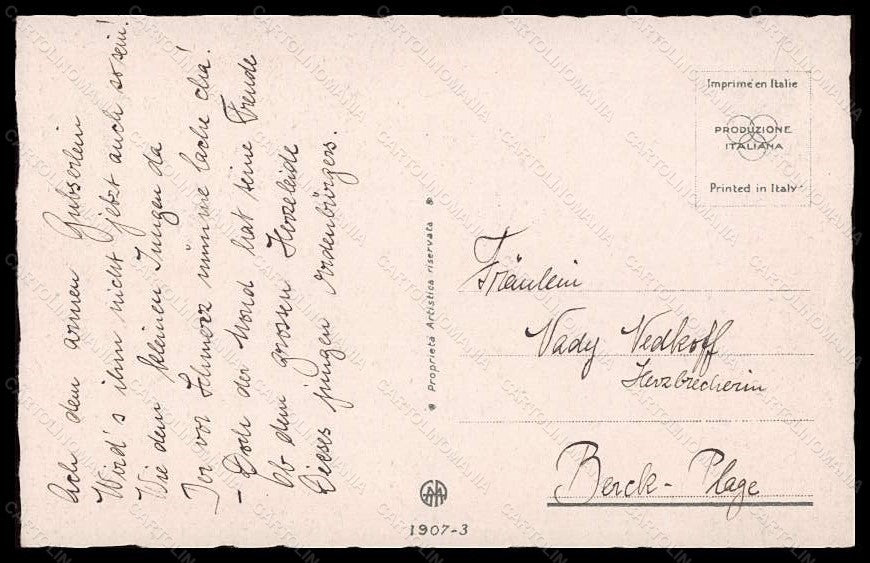 Ach dem armen
Wird's ihm nicht jetzt auch so sein!
Wie dem kleinen Jungen da
Der vor Schmerz nimme lache cha.
- Doch der Mond hat seine Freude
Ob dem grossen Herzeleide
Dieses jungen Ordenbürgers.
Proprietà Artistica riservata
1907-3
Imprimé en Italie
PRODUZIONE
ITALIANA
Printed in Italy
Fräulein
Vady Vedkoff
Herzbrecherin
Berck-Plage
CARTOLINOMANIA